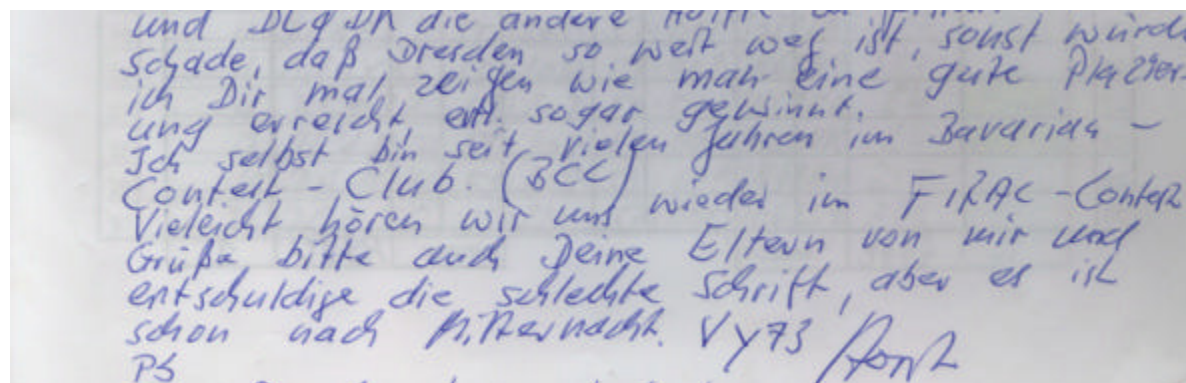 und DL9DR die andere Hälfte
Schade, daß Dresden so weit weg ist, sonst würde
ich Dir mal zeigen wie man eine gute Plazier-
ung erreicht, evtl. sogar gewinnt.
Ich selbst bin seit vielen Jahren im Bavarian -
Contest - Club. (BCC)
Vieleicht hören wir uns wieder im FIRAC - Contest
Grüße bitte auch Deine Eltern von mir und
entschuldige die schlechte Schrift, aber es ist
schon nach Mitternacht. Vy73 Horst
PS